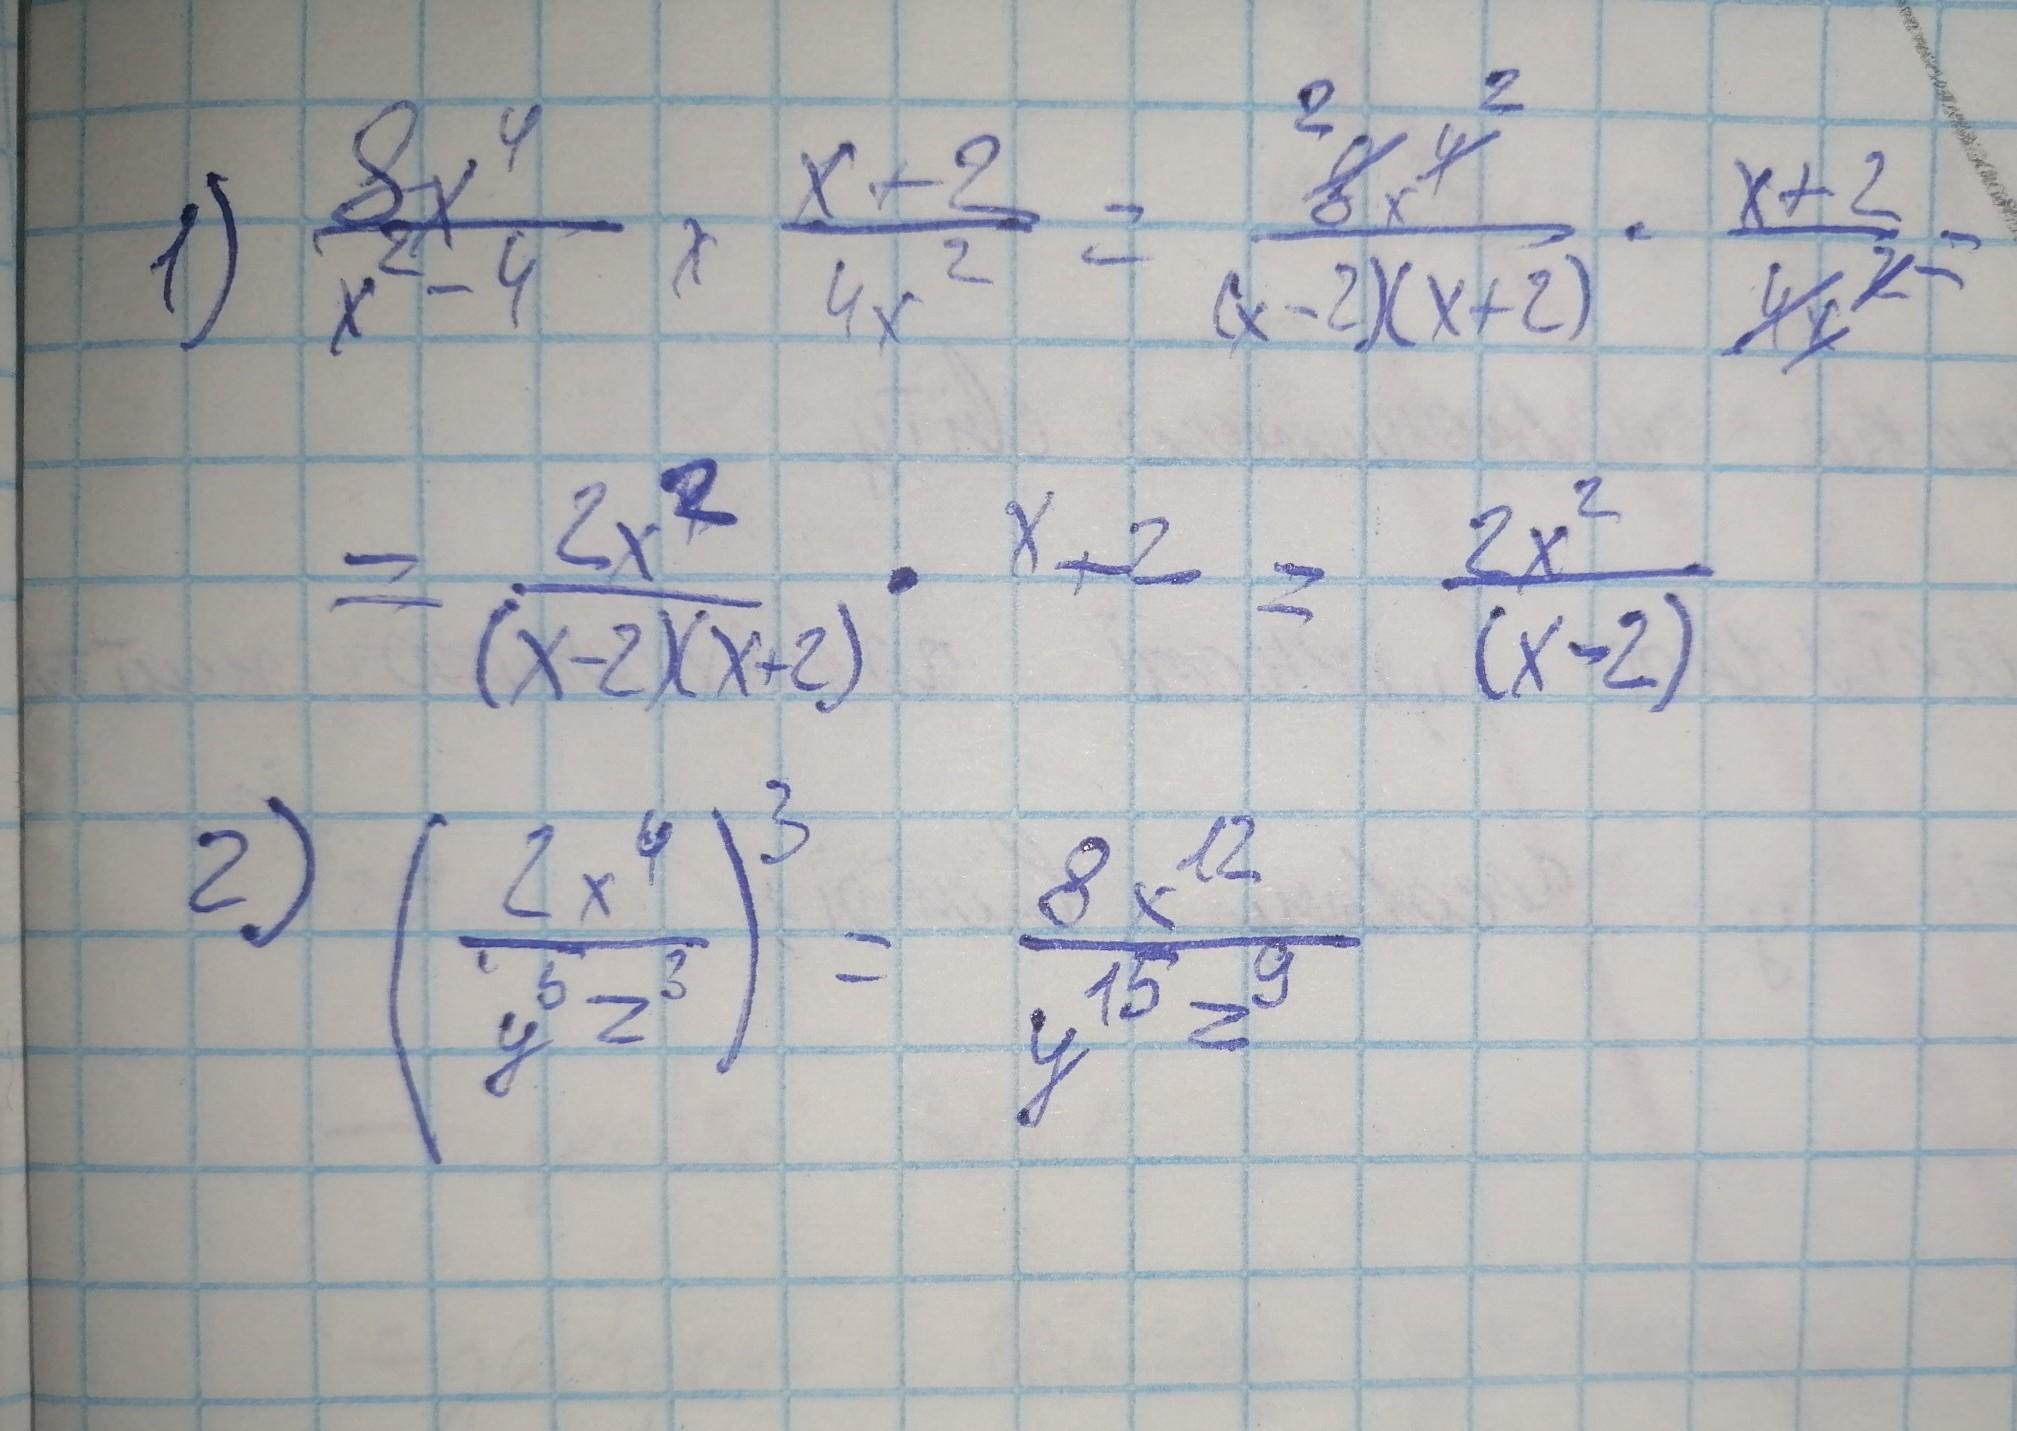 1) 8x⁴/(x²-4) x (x+2)/(4x²) = 8x⁴ 2 2/((x-2)(x+2)) · (x+2)/(4x²) =
= 2x²/((x-2)(x+2)) · x+2 = 2x²/(x-2)
2) (2x⁴/(y⁵z³))³ = 8x¹²/(y¹⁵z⁹)